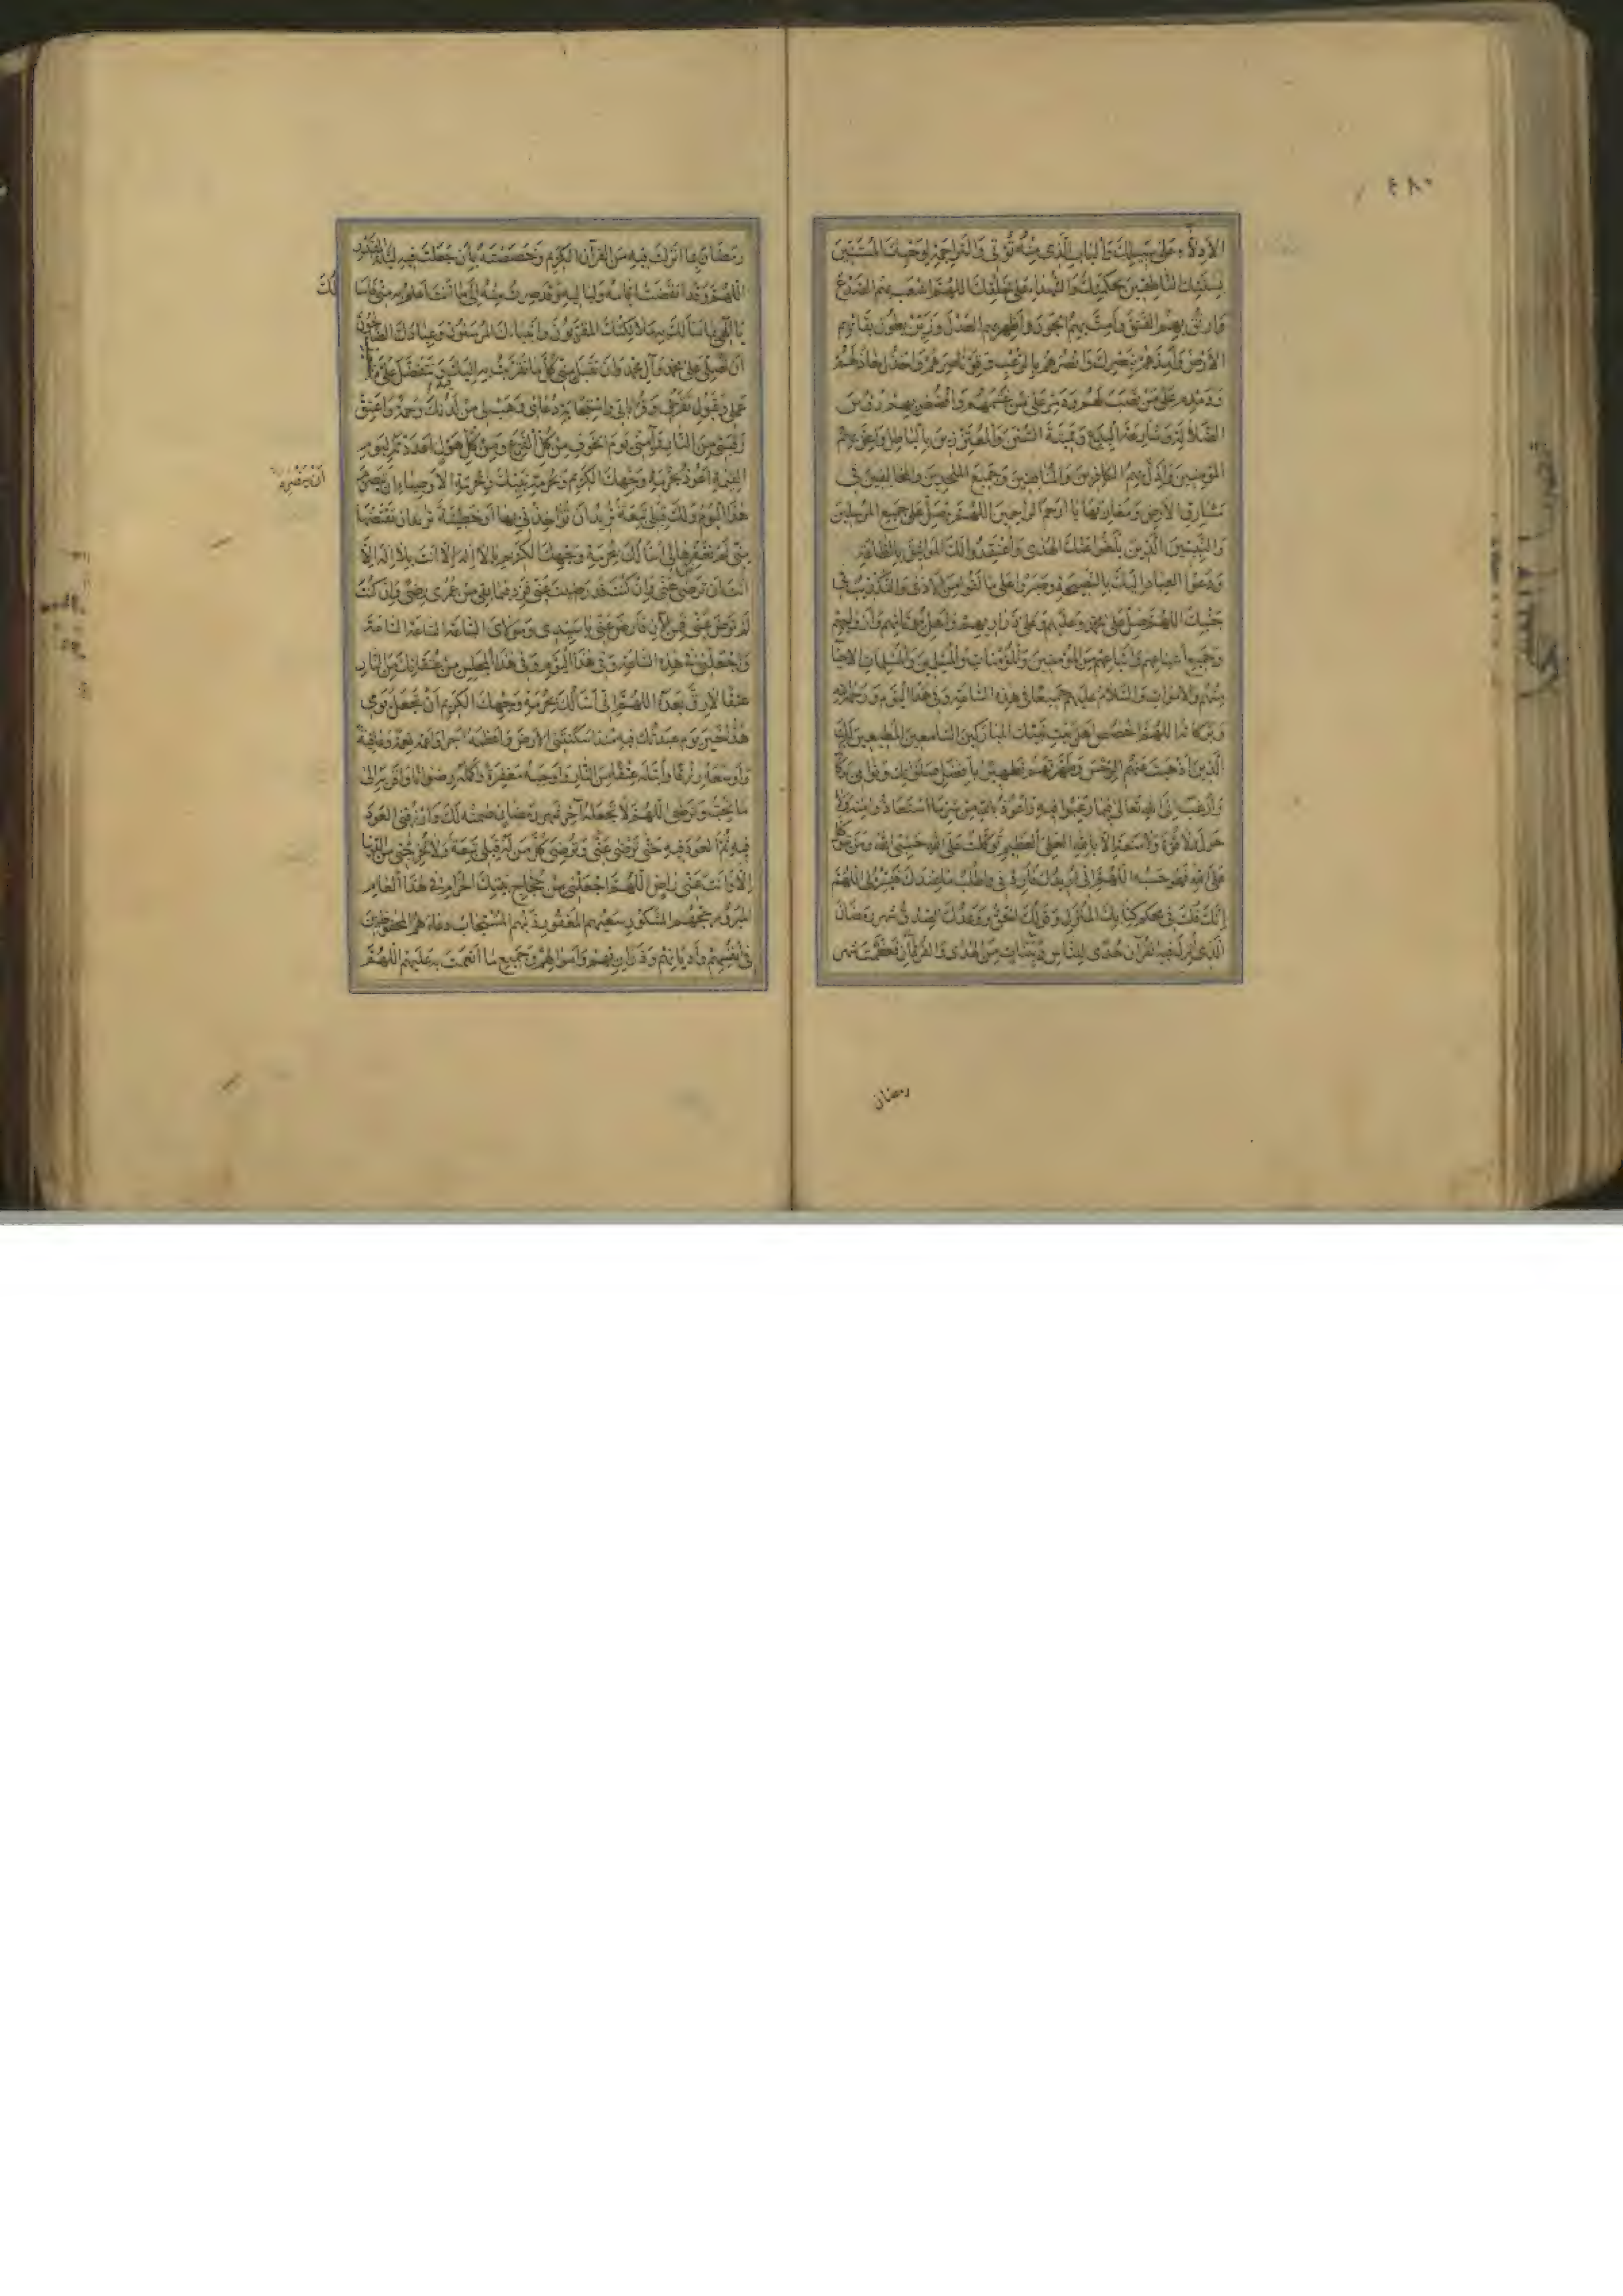 ٤٨٠
الأدلاء على سبيلك والباب الذي منه تؤتى والتراجمة لوحيك المستنين
بسنتك الناطقين بحكمتك والشهداء على خلقك اللهم اشعب بهم الصدع
وارتق بهم الفتق وأمت بهم الجور وأظهر بهم العدل وزين بطول بقائهم
الأرض وأيدهم بنصرك وانصرهم بالرعب وقو ناصرهم واخذل خاذلهم
ودمدم على من نصب لهم ودمر على من غشمهم وافضض بهم رؤس
الضلالة وشارعة البدع ومميتة السنن والمتعززين بالباطل وأعز بهم
المؤمنين وأذل بهم الكافرين والمنافقين وجميع الملحدين والمخالفين في
مشارق الأرض ومغاربها يا أرحم الراحمين اللهم فصل على جميع المرسلين
والنبيين الذين بلغوا عنك الهدى واعتقدوا لك المواثيق بالطاعة
ودعوا العباد إليك بالنصيحة وصبروا على ما لقوا من الأذى والتكذيب في
جنبك اللهم صل على محمد وعليهم وعلى ذراريهم وأهل بيوتاتهم وأزواجهم
وجميع أشياعهم وأتباعهم من المؤمنين والمؤمنات والمسلمين والمسلمات الأحياء
منهم والأموات والسلام عليهم جميعا في هذه الساعة وفي هذا اليوم ورحمة الله
وبركاته اللهم اخصص أهل بيت نبيك المباركين السامعين المطيعين لك
الذين أذهبت عنهم الرجس وطهرتهم تطهيرا بأفضل صلواتك ونوامي بركاتك
حول ولا قوة إلا بالله العلي العظيم توكلت على الله حسبي الله ومن يتوكل
على الله فهو حسبه اللهم إني
إنك قلت في محكم كتابك المنزل وقولك الحق ووعدك الصدق شهر رمضان
الذي أنزل فيه القرآن هدى للناس وبينات من الهدى والفرقان فعظمت شهر
رمضان
رمضان بما أنزلت فيه من القرآن الكريم وخصصته بأن جعلت فيه ليلة القدر
اللهم وقد انقضت أيامه ولياليه وقد صرت منه إلى ما أنت أعلم به مني فأسألك
يا إلهي بما سألك به ملائكتك المقربون وأنبياءك المرسلون وعبادك الصالحون
أن تصلي على محمد وآل محمد وأن تقبل مني كل ما تقربت به إليك وتتفضل علي
عملي وقبول تقربي وقرباتي واستجابة دعائي وهب لي من لدنك رحمة وأعتق
رقبتي من النار وآمني يوم الخوف من كل الفزع ومن كل هول أعددته ليوم
القيمة أعوذ بحرمة وجهك الكريم وبحرمة نبيك وبحرمة الأوصياء أن يتصرم
أن يتصرم
هذا اليوم ولك قبلي تبعة تريد أن تؤاخذني بها أو خطيئة تريد أن تقتصها
مني لم تغفرها لي أسألك بحرمة وجهك الكريم يا لا إله إلا أنت بلا إله إلا
أنت أن ترضى عني وإن كنت قد رضيت عني فزد فيما بقي من عمري رضى وإن كنت
لم ترض عني فمن الآن فارض عني يا سيدي ومولاي الساعة الساعة الساعة
واجعلني في هذه الساعة وفي هذا اليوم وفي هذا المجلس من عتقائك من النار
عتقا لا رق بعده اللهم إني أسألك بحرمة وجهك الكريم أن تجعل يومي
هذا خير يوم عبدتك فيه منذ أسكنتني الأرض وأعظمه أجرا وأعمه نعمة وعافية
وأوسعه رزقا وأبتله عتقا من النار وأوجبه مغفرة وأكمله رضوانا وأقربه إلى
ما تحب وترضى اللهم لا تجعله آخر شهر رمضان صمته لك وارزقني العود
فيه ثم العود فيه حتى ترضى عني وترضي كل من له قبلي تبعة ولا تخرجني من الدنيا
إلا وأنت عني راض اللهم اجعلني من حجاج بيتك الحرام في هذا العام
المبرور حجهم المشكور سعيهم المغفور ذنبهم المستجاب دعاءهم المحفوظين
في أنفسهم وأديانهم وذراريهم وأموالهم وجميع ما أنعمت به عليهم اللهم